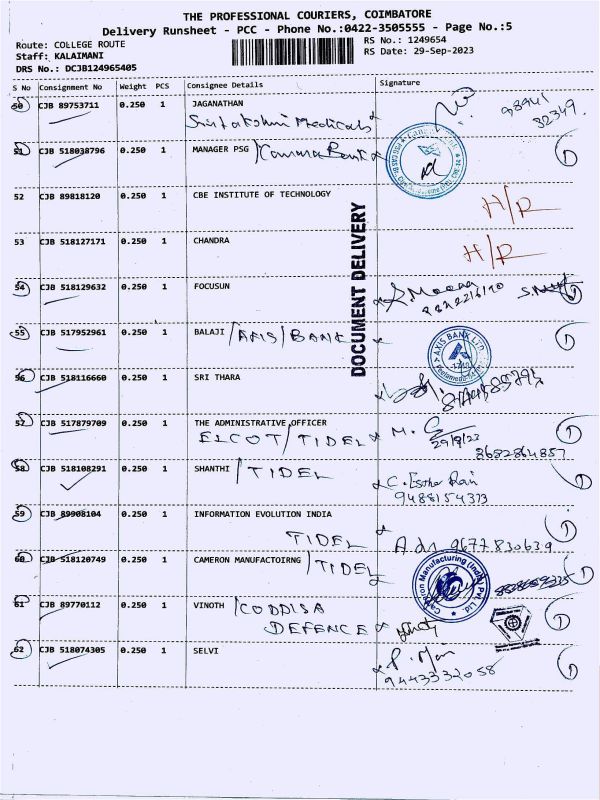 THE PROFESSIONAL COURIERS, COIMBATORE
Delivery Runsheet - PCC - Phone No.:0422-3505555 - Page No.:5
Route: COLLEGE ROUTE
Staff: KALAIMANI
DRS No.: DCJB124965405
RS No.: 1249654
RS Date: 29-Sep-2023
S No Consignment No Weight PCS Consignee Details Signature
50 CJB 89753711 0.250 1 JAGANATHAN
Medicals
98941
32349
51 CJB 518038796 0.250 1 MANAGER PSG / Canara Bank
52 CJB 89818120 0.250 1 CBE INSTITUTE OF TECHNOLOGY H/R
53 CJB 518127171 0.250 1 CHANDRA H/R
DOCUMENT DELIVERY
54 CJB 518129632 0.250 1 FOCUSUN
55 CJB 517952961 0.250 1 BALAJI / AXIS / BANK
AXIS BANK LTD
56 CJB 518116660 0.250 1 SRI THARA
57 CJB 517879709 0.250 1 THE ADMINISTRATIVE OFFICER
ELCOT / TIDEL
29/9/23
8682864857
58 CJB 518108291 0.250 1 SHANTHI / TIDEL
C. Esther Rani
9488154373
59 CJB 89908104 0.250 1 INFORMATION EVOLUTION INDIA
TIDEL
9677830639
60 CJB 518120749 0.250 1 CAMERON MANUFACTOIRNG / TIDEL
Cameron Manufacturing (India) Pvt. Ltd
61 CJB 89770112 0.250 1 VINOTH / CODDISA
DEFENCE
62 CJB 518074305 0.250 1 SELVI
9443332058